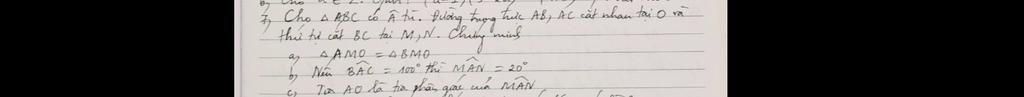 7, Cho △ ABC có Â tù. Đường trung trực AB, AC cắt nhau tại O và
thứ tự cắt BC tại M, N. Chứng minh
a, △ AMO = △ BMO
b, Nếu BÂC = 100° thì MÂN = 20°
c, Tia AO là tia phân giác của MÂN